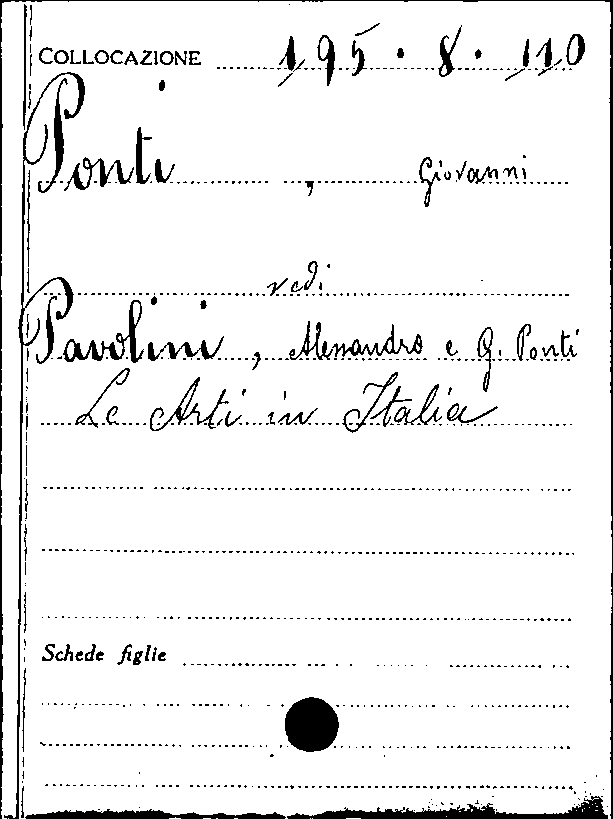 COLLOCAZIONE 195.8.110
Ponti, Giovanni
vedi
Pavolini, Alessandro e G. Ponti
Le Arti in Italia
Schede figlie